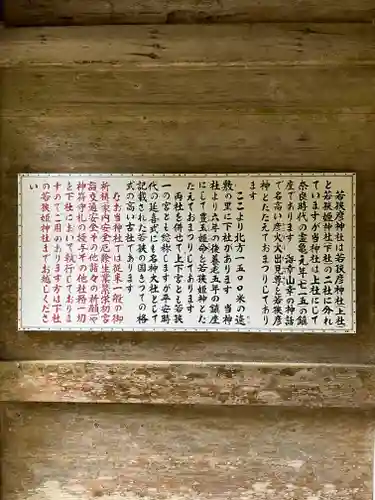 若狭彦神社は若狭彦神社上社
と若狭姫神社下社の二社に分れ
ていますが当神社は上社にして
奈良時代の霊亀元年七一五の鎮
座であります 海幸山幸の神話
で名高い彦火火出見尊を若狭彦
神とたたえておまつりしてあり
ます
ここより北方一五〇〇米の遠
敷の里に下社があります 当神
社より六年の後養老五年の鎮座
にして豊玉姫命を若狭姫神とた
たえておまつりしてあります
両社を併せて上下宮とも若狭
一の宮とも総称しますが平安時
代の延喜式には名神大社として
記載された若狭の国きっての格
式の高い古社であります
なお当神社では従来一般の御
祈祷家内安全厄除生業繁栄初宮
詣交通安全その他諸々の祈願や
神符守札の授与その他社務一切
を下社において執行しておりま
すのでご用のあります方は下社
の若狭姫神社までお越しくださ
い